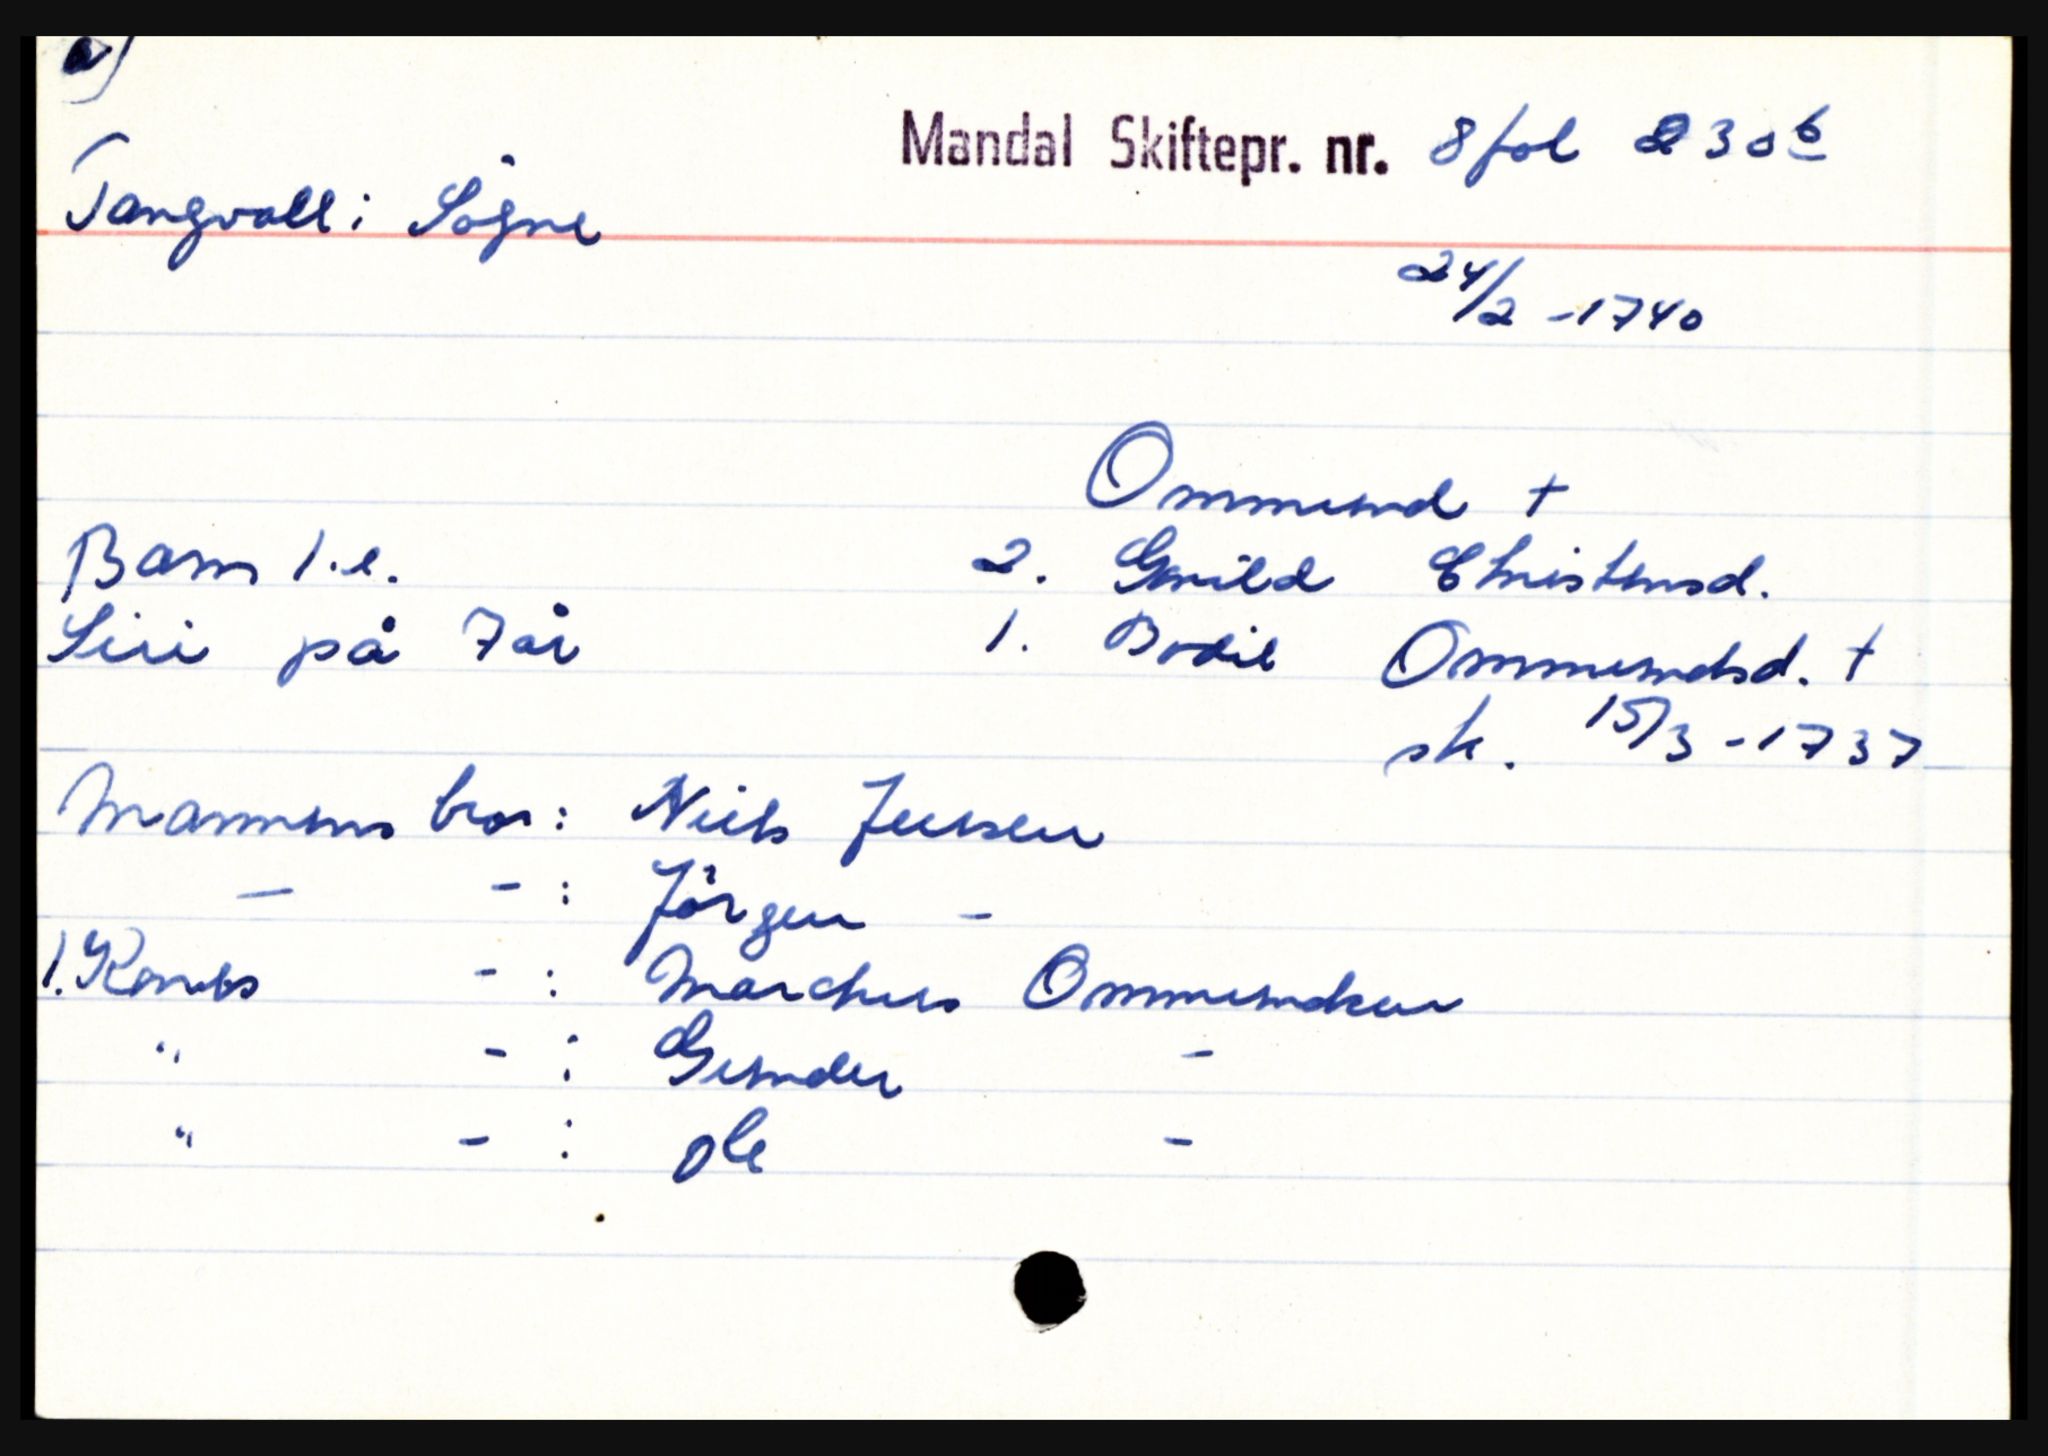 a)
Mandal Skiftepr. nr. 8 fol 230b
Tangvall i Søgne
24/2 - 1740
Ommund †
Barn 1.e. 2. Gunild Christensd.
Siri på 7 år 1. Bodil Ommundsd. †
sk. 15/3 - 1737
Mannens bror: Niels Jensen
— - : Jörgen -
1. Konens - : Marchus Ommundsen
" - : Gunder -
" - : Ole -